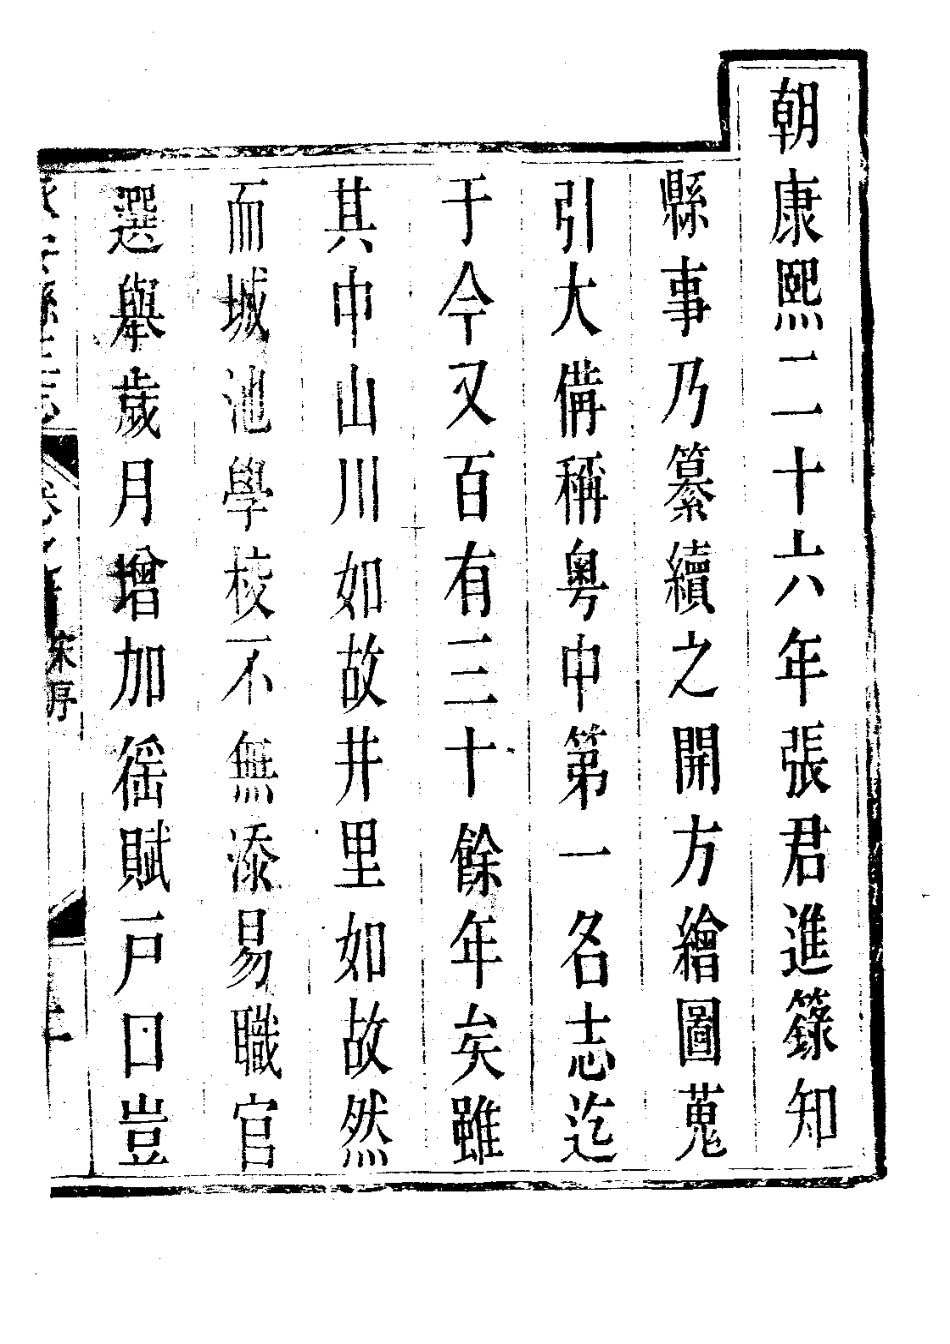 朝康熙二十六年張君進籙知
縣事乃纂續之開方繪圖蒐
引大備稱粵中第一名志迄
于今又百有三十餘年矣雖
其中山川如故井里如故然
而城池學校不無添易職官
選舉歲月增加徭賦戶口豈
宋序